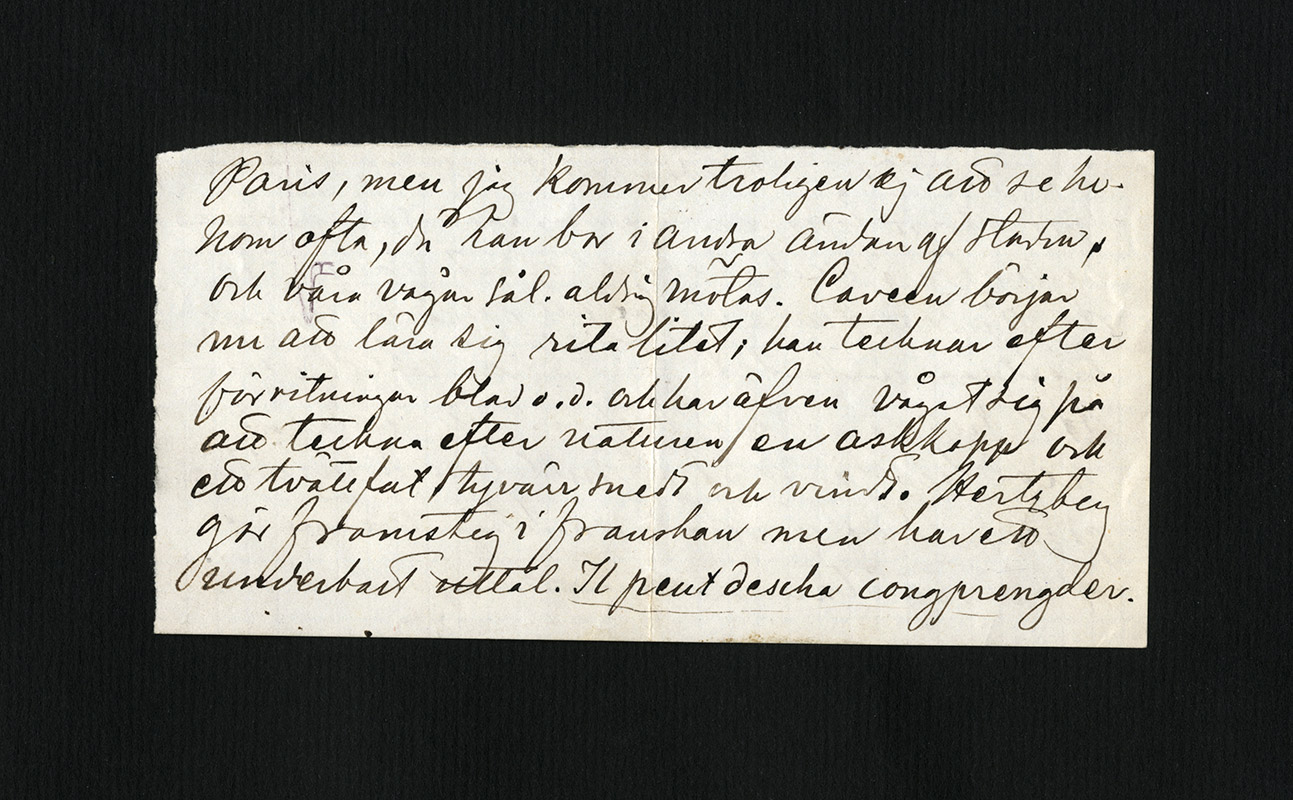 Paris, men jag kommer troligen ej att se ho-
nom ofta, då han bor i andra ändan af staden,
och våra vägar sål. aldrig mötas. Caveen börjar
nu att lära sig rita litet; han tecknar efter
förritningar blad o.d. och har äfven vågat sig på
att teckna efter naturen en askkopp och
ett tvättfat, tyvärr snedt och vindt. Hertzberg
gör framsteg i franskan men har ett
underbart uttal. Il peut descha congprengder.